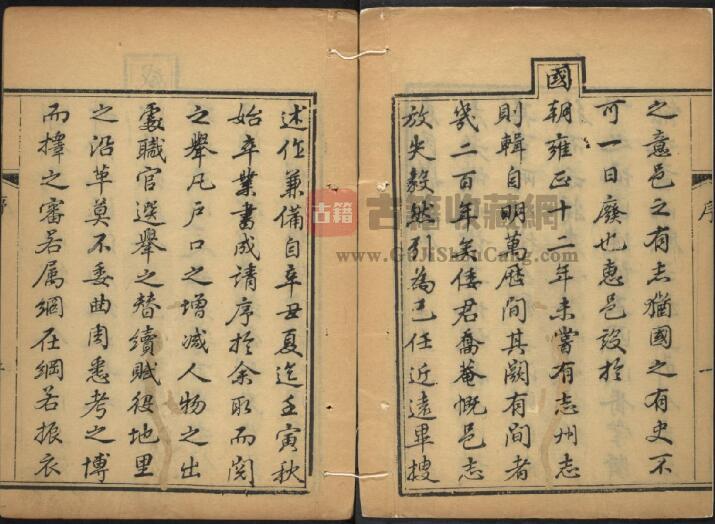 之意邑之有志猶國之有史不
可一日廢也惠邑設於
國朝雍正十二年未嘗有志州志
則輯自明萬厯間其闕有間者
幾二百年矣倭君喬菴慨邑志
放失毅然引為己任近遠畢搜
序
述作兼備自辛丑夏迄壬寅秋
始卒業書成請序於余取而閱
之舉凡戶口之增減人物之出
處職官選舉之替續賦役地里
之沿革莫不委曲周悉考之博
而擇之審若属網在綱若振衣
古籍
古籍收藏網
www.GuJiShuCang.com